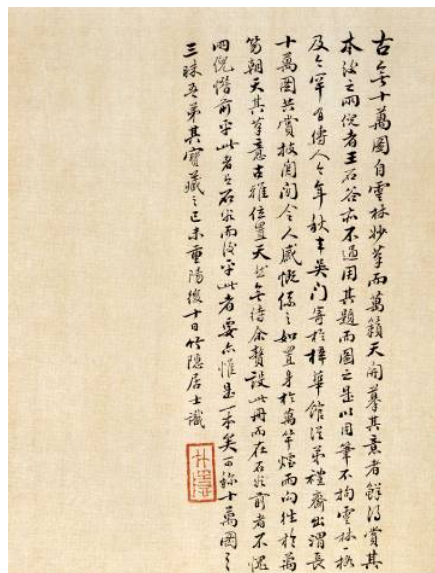 古無十萬圖自雲林妙筆而萬籟天開摹其意者鮮得賞其
本後之兩倪者王石谷亦不過用其題而圖之是以用筆不拘雲林一格
及今罕有傳人今年秋半吳門寄於梓華館從弟禮齋出渭長
十萬圖共賞披閱間令人感慨係之如置身於萬竿煙雨向往於萬
笏朝天其筆意古雅位置天然無待余贅設此冊而在石谷前者不愧
兩倪惜前乎此者有石谷而後乎此者要亦惟是一本矣可稱十萬圖之
三昧吾弟其寶藏之己未重陽後十日竹隱居士識